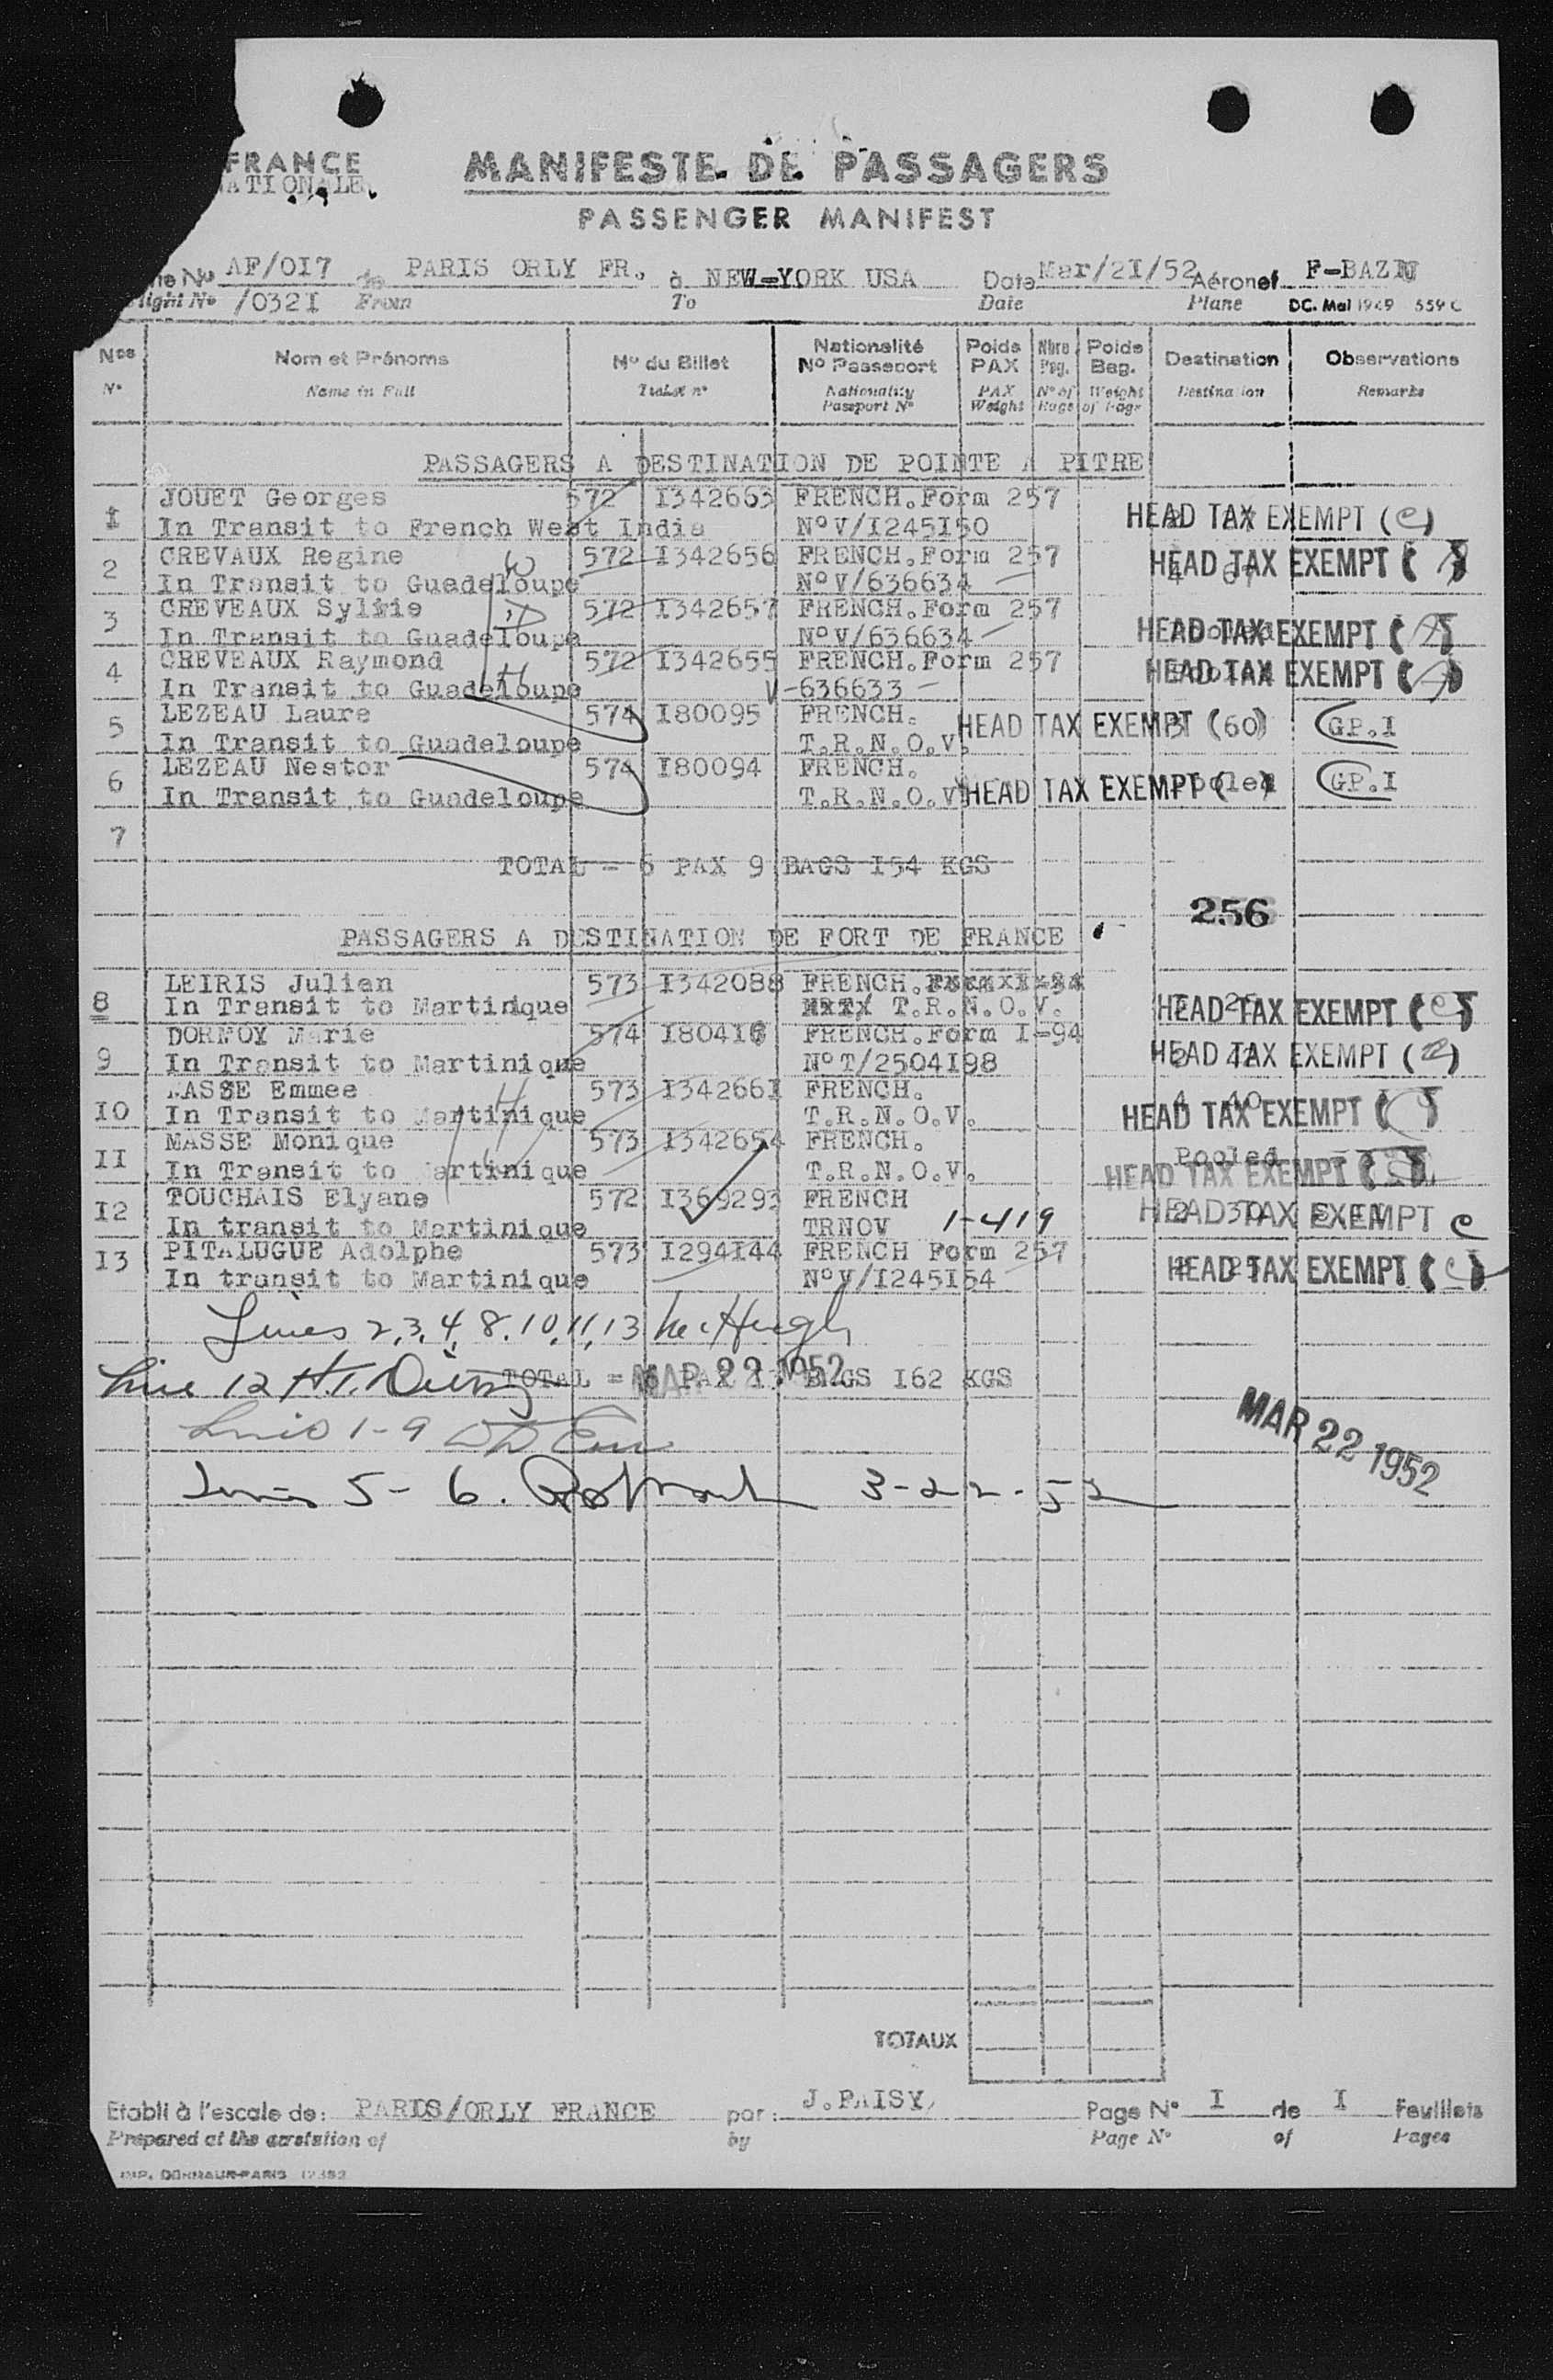 FRANCE
NATIONALE
MANIFESTE DE PASSAGERS
PASSENGER MANIFEST
ne No AF/OI7 de PARIS ORLY FR. à NEW-YORK USA Date Mar/2I/52 Aéronef F-BAZN
light No /032I From To Date Plane DC. Mai 1949 559 C
Nos Nom et Prénoms No du Billet Nationalité No Passeport Poids PAX Nbre Bag. Poids Bag. Destination Observations
No Name in Full Ticket no Nationality Passport No PAX Weight No of Bags Weight of Bags Destination Remarks
PASSAGERS A DESTINATION DE POINTE A PITRE
I JOUET Georges 572 I342663 FRENCH.Form 257
In Transit to French West India No V/I245I50 HEAD TAX EXEMPT (C)
2 CREVAUX Regine W 572 I342656 FRENCH.Form 257 HEAD TAX EXEMPT
In Transit to Guadeloupe No V/636634
3 CREVEAUX Sylvie D 572 I342657 FRENCH.Form 257
In Transit to Guadeloupe No V/636634 HEAD TAX EXEMPT
4 CREVEAUX Raymond H 572 I342655 FRENCH.Form 257 HEAD TAX EXEMPT
In Transit to Guadeloupe V-636633
5 LEZEAU Laure 574 I80095 FRENCH. HEAD TAX EXEMPT (60) GP.I
In Transit to Guadeloupe T.R.N.O.V.
6 LEZEAU Nestor 574 I80094 FRENCH. HEAD TAX EXEMPT Pooled GP.I
In Transit to Guadeloupe T.R.N.O.V.
7
TOTAL = 6 PAX 9 BAGS I54 KGS
256
PASSAGERS A DESTINATION DE FORT DE FRANCE
8 LEIRIS Julien 573 I342088 FRENCH.
In Transit to Martinique T.R.N.O.V. HEAD TAX EXEMPT
9 DORMOY Marie 574 I80416 FRENCH.Form I-94
In Transit to Martinique No T/2504I98 HEAD TAX EXEMPT
IO MASSE Emmee 573 I34266I FRENCH.
In Transit to Martinique T.R.N.O.V. HEAD TAX EXEMPT
II MASSE Monique 573 I342654 FRENCH. Pooled
In Transit to Martinique T.R.N.O.V. HEAD TAX EXEMPT
I2 TOUCHAIS Elyane 572 I369293 FRENCH HEAD TAX EXEMPT C
In transit to Martinique TRNOV 1-419
I3 PITALUGUE Adolphe 573 I294I44 FRENCH Form 257 HEAD TAX EXEMPT
In transit to Martinique No V/I245I54
Lines 2,3,4, 8, 10, 11, 13 McHugh
Line 12 TOTAL = MAR 22 1952 BAGS I62 KGS
1-9
MAR 22 1952
Lines 5-6. 3-22-52
TOTAUX
Etabli à l'escale de: PARIS/ORLY FRANCE par: J.PAISY Page No I de I Feuillets
Prepared at the aerostation of by Page No of Pages
IMP. DORMAUR-PARIS 12352